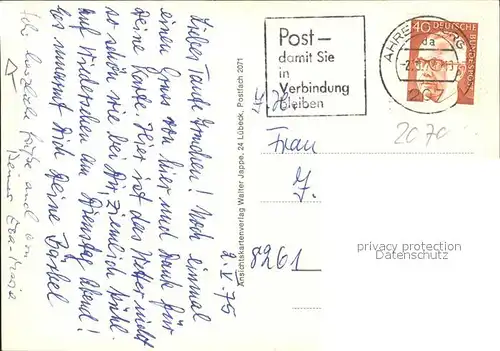 Liebe Tante Gretchen! Noch einmal
einen Gruss von hier und Dank für
Deine Karte. Hier ist das Wetter nicht
so schön wie bei Dir, ziemlich kühl.
Auf Wiedersehen am Dienstag Abend!
Es umarmt Dich Deine Bärbel
Ich herzliche Grüße auch von
Deiner Eva-Maria
2.V.75
Ansichtskartenverlag Walter Jappe, 24 Lübeck, Postfach 2071
Post –
damit Sie
in
Verbindung
bleiben
AHRENSBURG
da
207
40
DEUTSCHE
BUNDESPOST
2070
Frau
J.
8261
privacy protection
Datenschutz